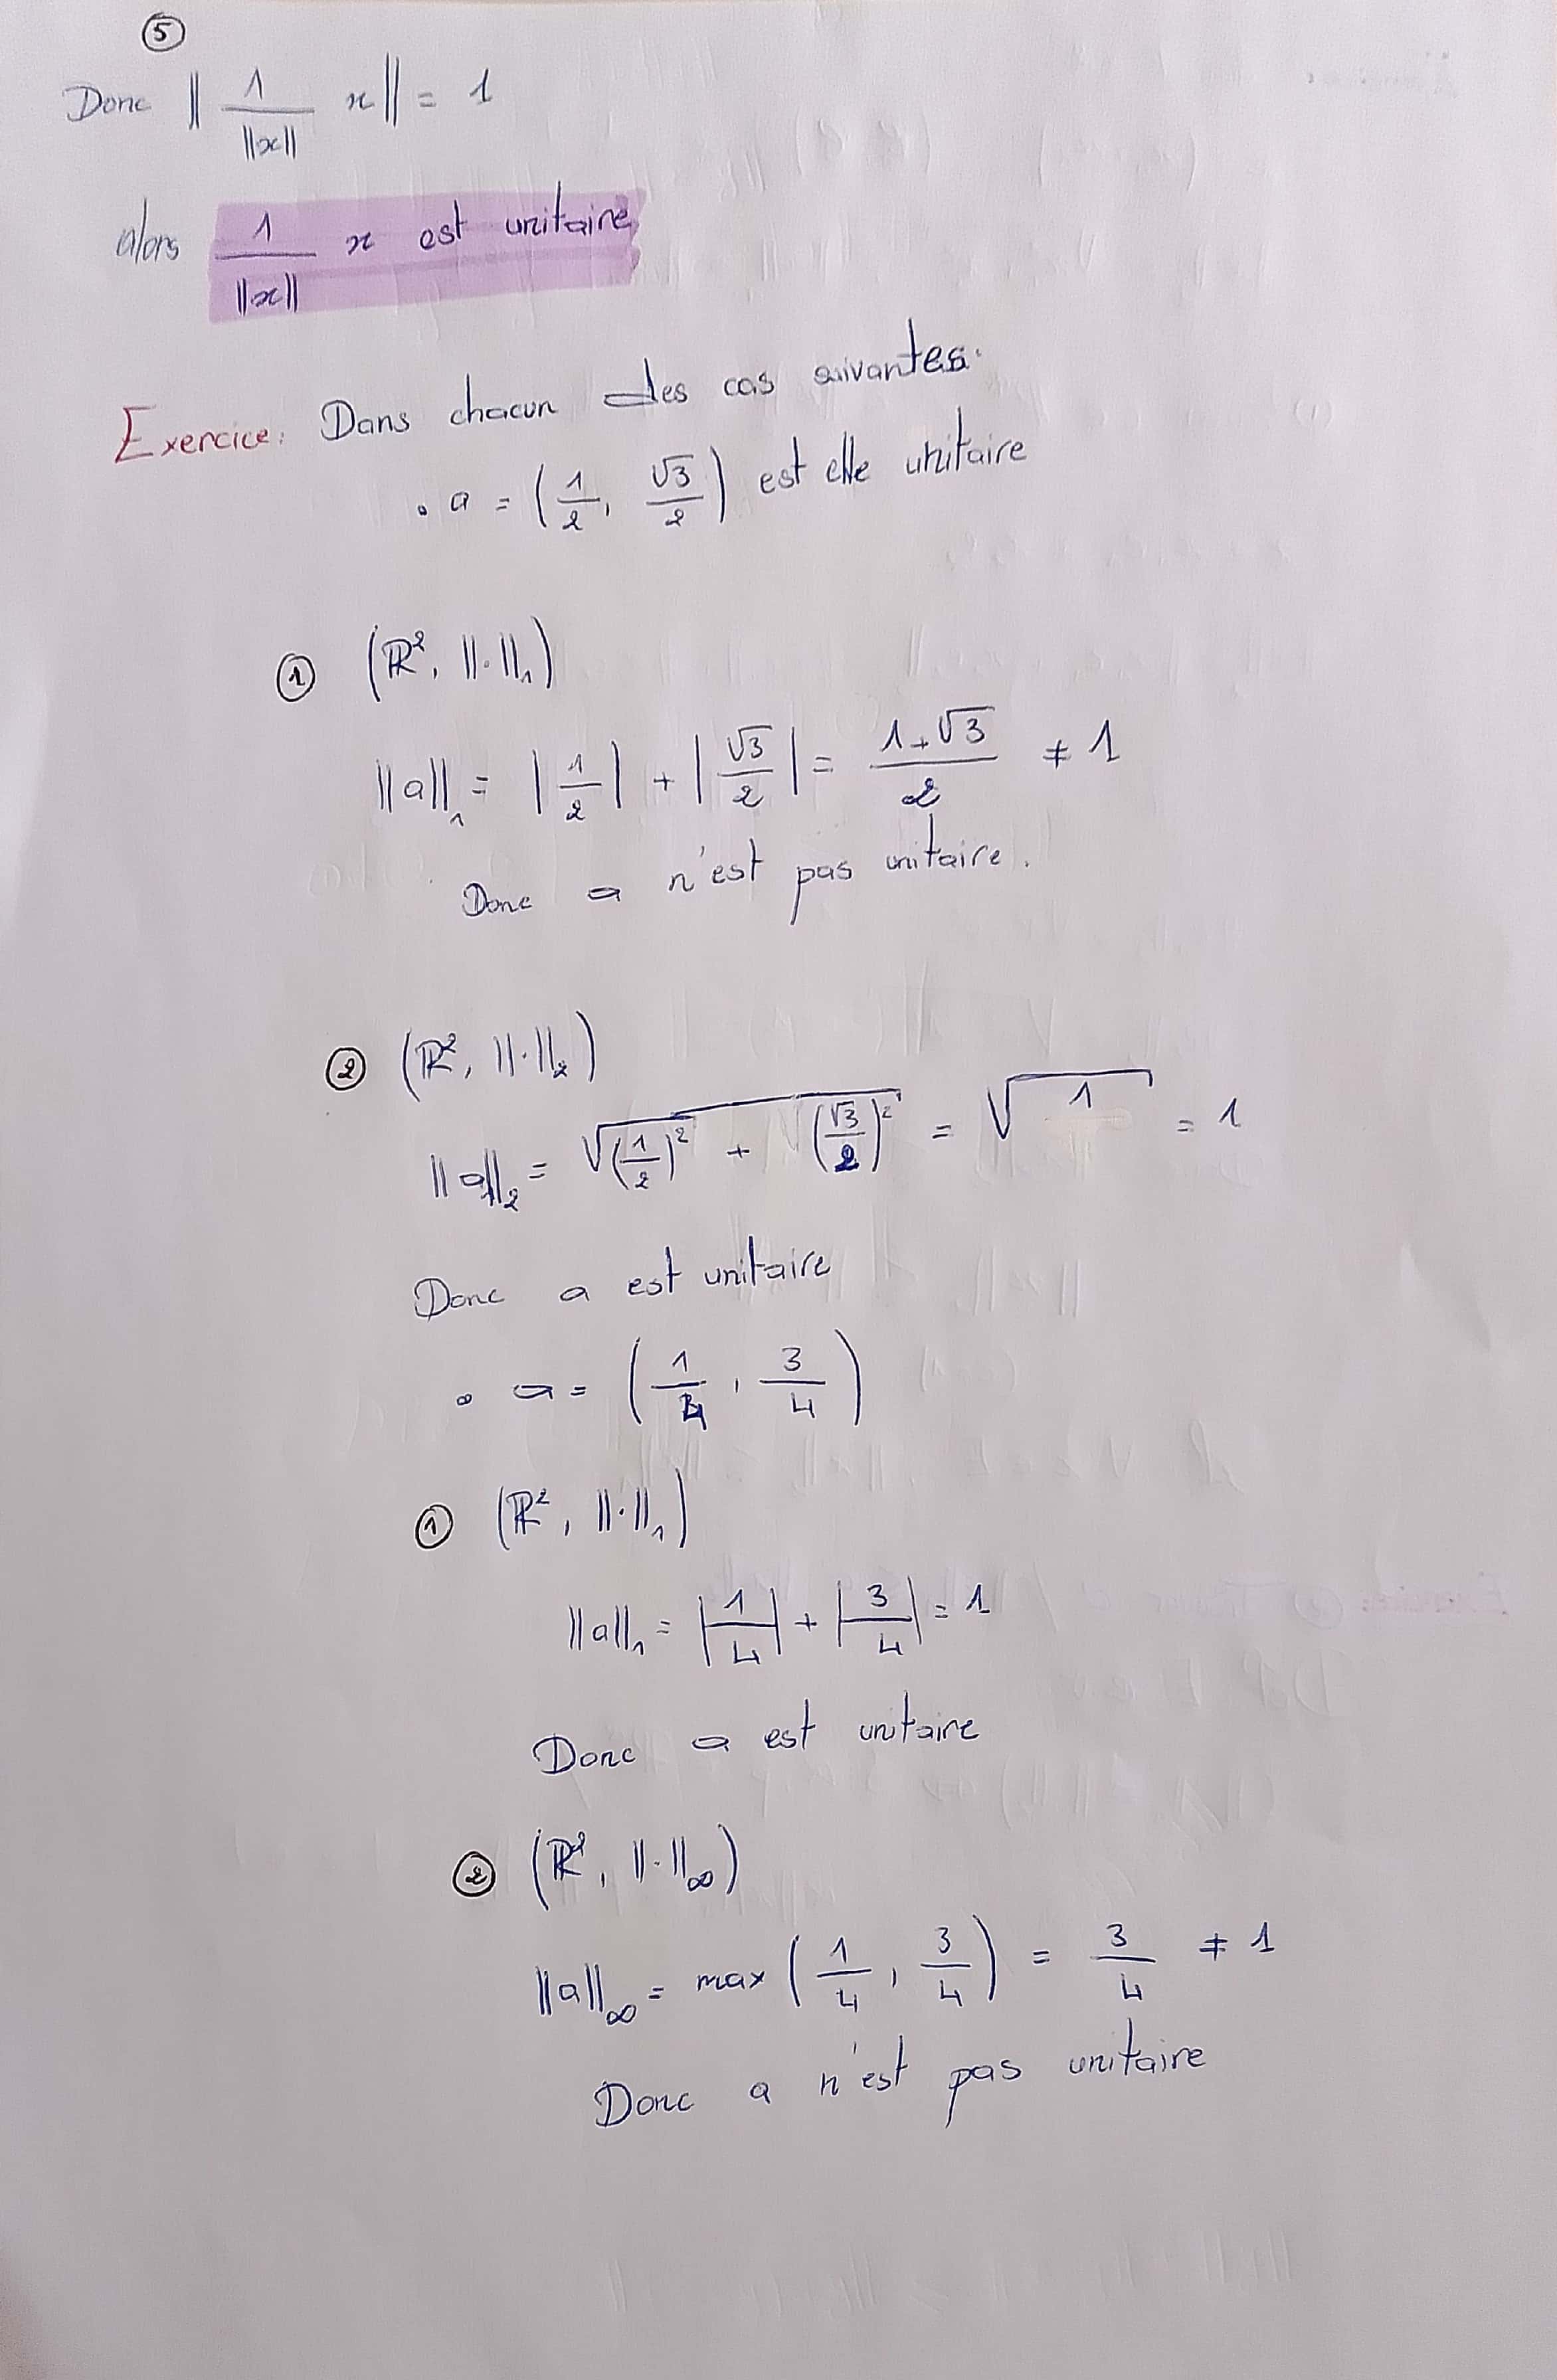 ⑤
Donc || 1/||x|| x || = 1
alors 1/||x|| x est unitaire
Exercice: Dans chacun des cas suivantes.
• a = (1/2, √3/2) est elle unitaire
① (ℝ², ||·||₁)
||a||₁ = |1/2| + |√3/2| = (1+√3)/2 ≠ 1
Donc a n'est pas unitaire.
② (ℝ², ||·||₂)
||a||₂ = √((1/2)² + (√3/2)²) = √1 = 1
Donc a est unitaire
• a = (1/4, 3/4)
① (ℝ², ||·||₁)
||a||₁ = |1/4| + |3/4| = 1
Donc a est unitaire
② (ℝ², ||·||∞)
||a||∞ = max (1/4, 3/4) = 3/4 ≠ 1
Donc a n'est pas unitaire